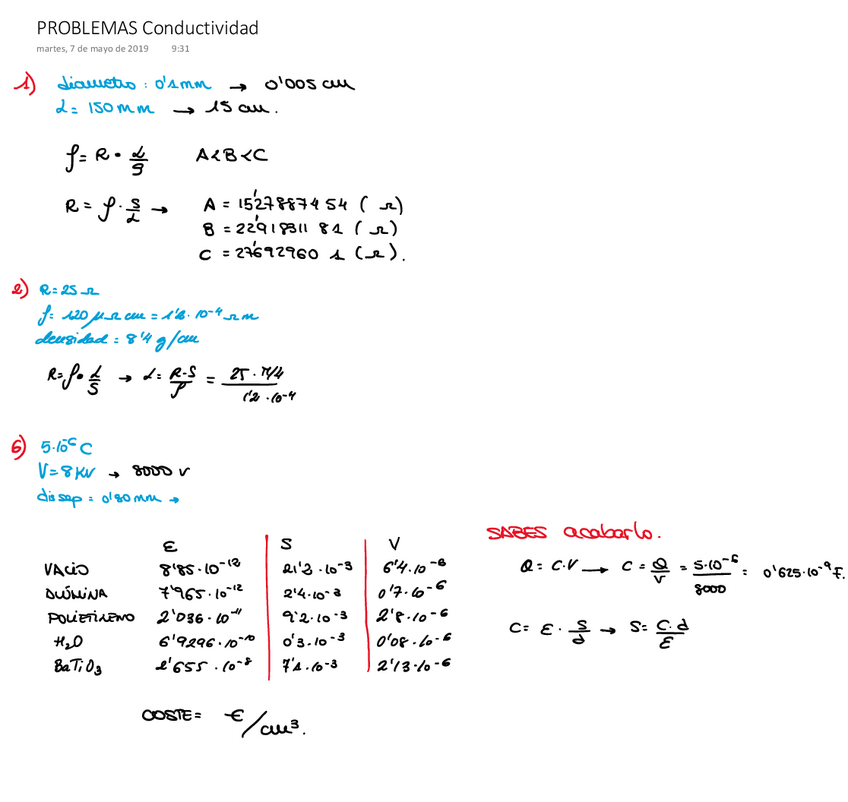 PROBLEMAS Conductividad
martes, 7 de mayo de 2019 9:31
1) diametro : 0'1mm → 0'005 cm
L = 150 mm → 15 cm.
ρ = R · L/S A<B<C
R = ρ · S/L → A = 15'27887454 (Ω)
B = 22'91831181 (Ω)
C = 27'6929601 (Ω).
2) R = 25 Ω
ρ = 120 μΩ cm = 1'2 · 10⁻⁴ Ω m
densidad = 8'4 g/cm
R = ρ · L/S → L = R·S/ρ = 25 · π/4 / 1'2 · 10⁻⁴
6) 5·10⁻⁶ C
V = 8 KV → 8000 V
dis sep = 0'80 mm →
SABES acabarlo.
ε S V
VACIO 8'85·10⁻¹² 21'3·10⁻³ 6'4·10⁻⁶
ALÚMINA 7'965·10⁻¹² 2'4·10⁻³ 0'7·10⁻⁶
POLIETILENO 2'036·10⁻¹¹ 9'2·10⁻³ 2'8·10⁻⁶
H₂O 6'9296·10⁻¹⁰ 0'3·10⁻³ 0'08·10⁻⁶
BaTiO₃ 2'655·10⁻⁸ 7'1·10⁻³ 2'13·10⁻⁶
Q = C·V → C = Q/V = 5·10⁻⁶/8000 = 0'625·10⁻⁹ F.
C = ε · S/d → S = C·d/ε
COSTE = €/cm³.